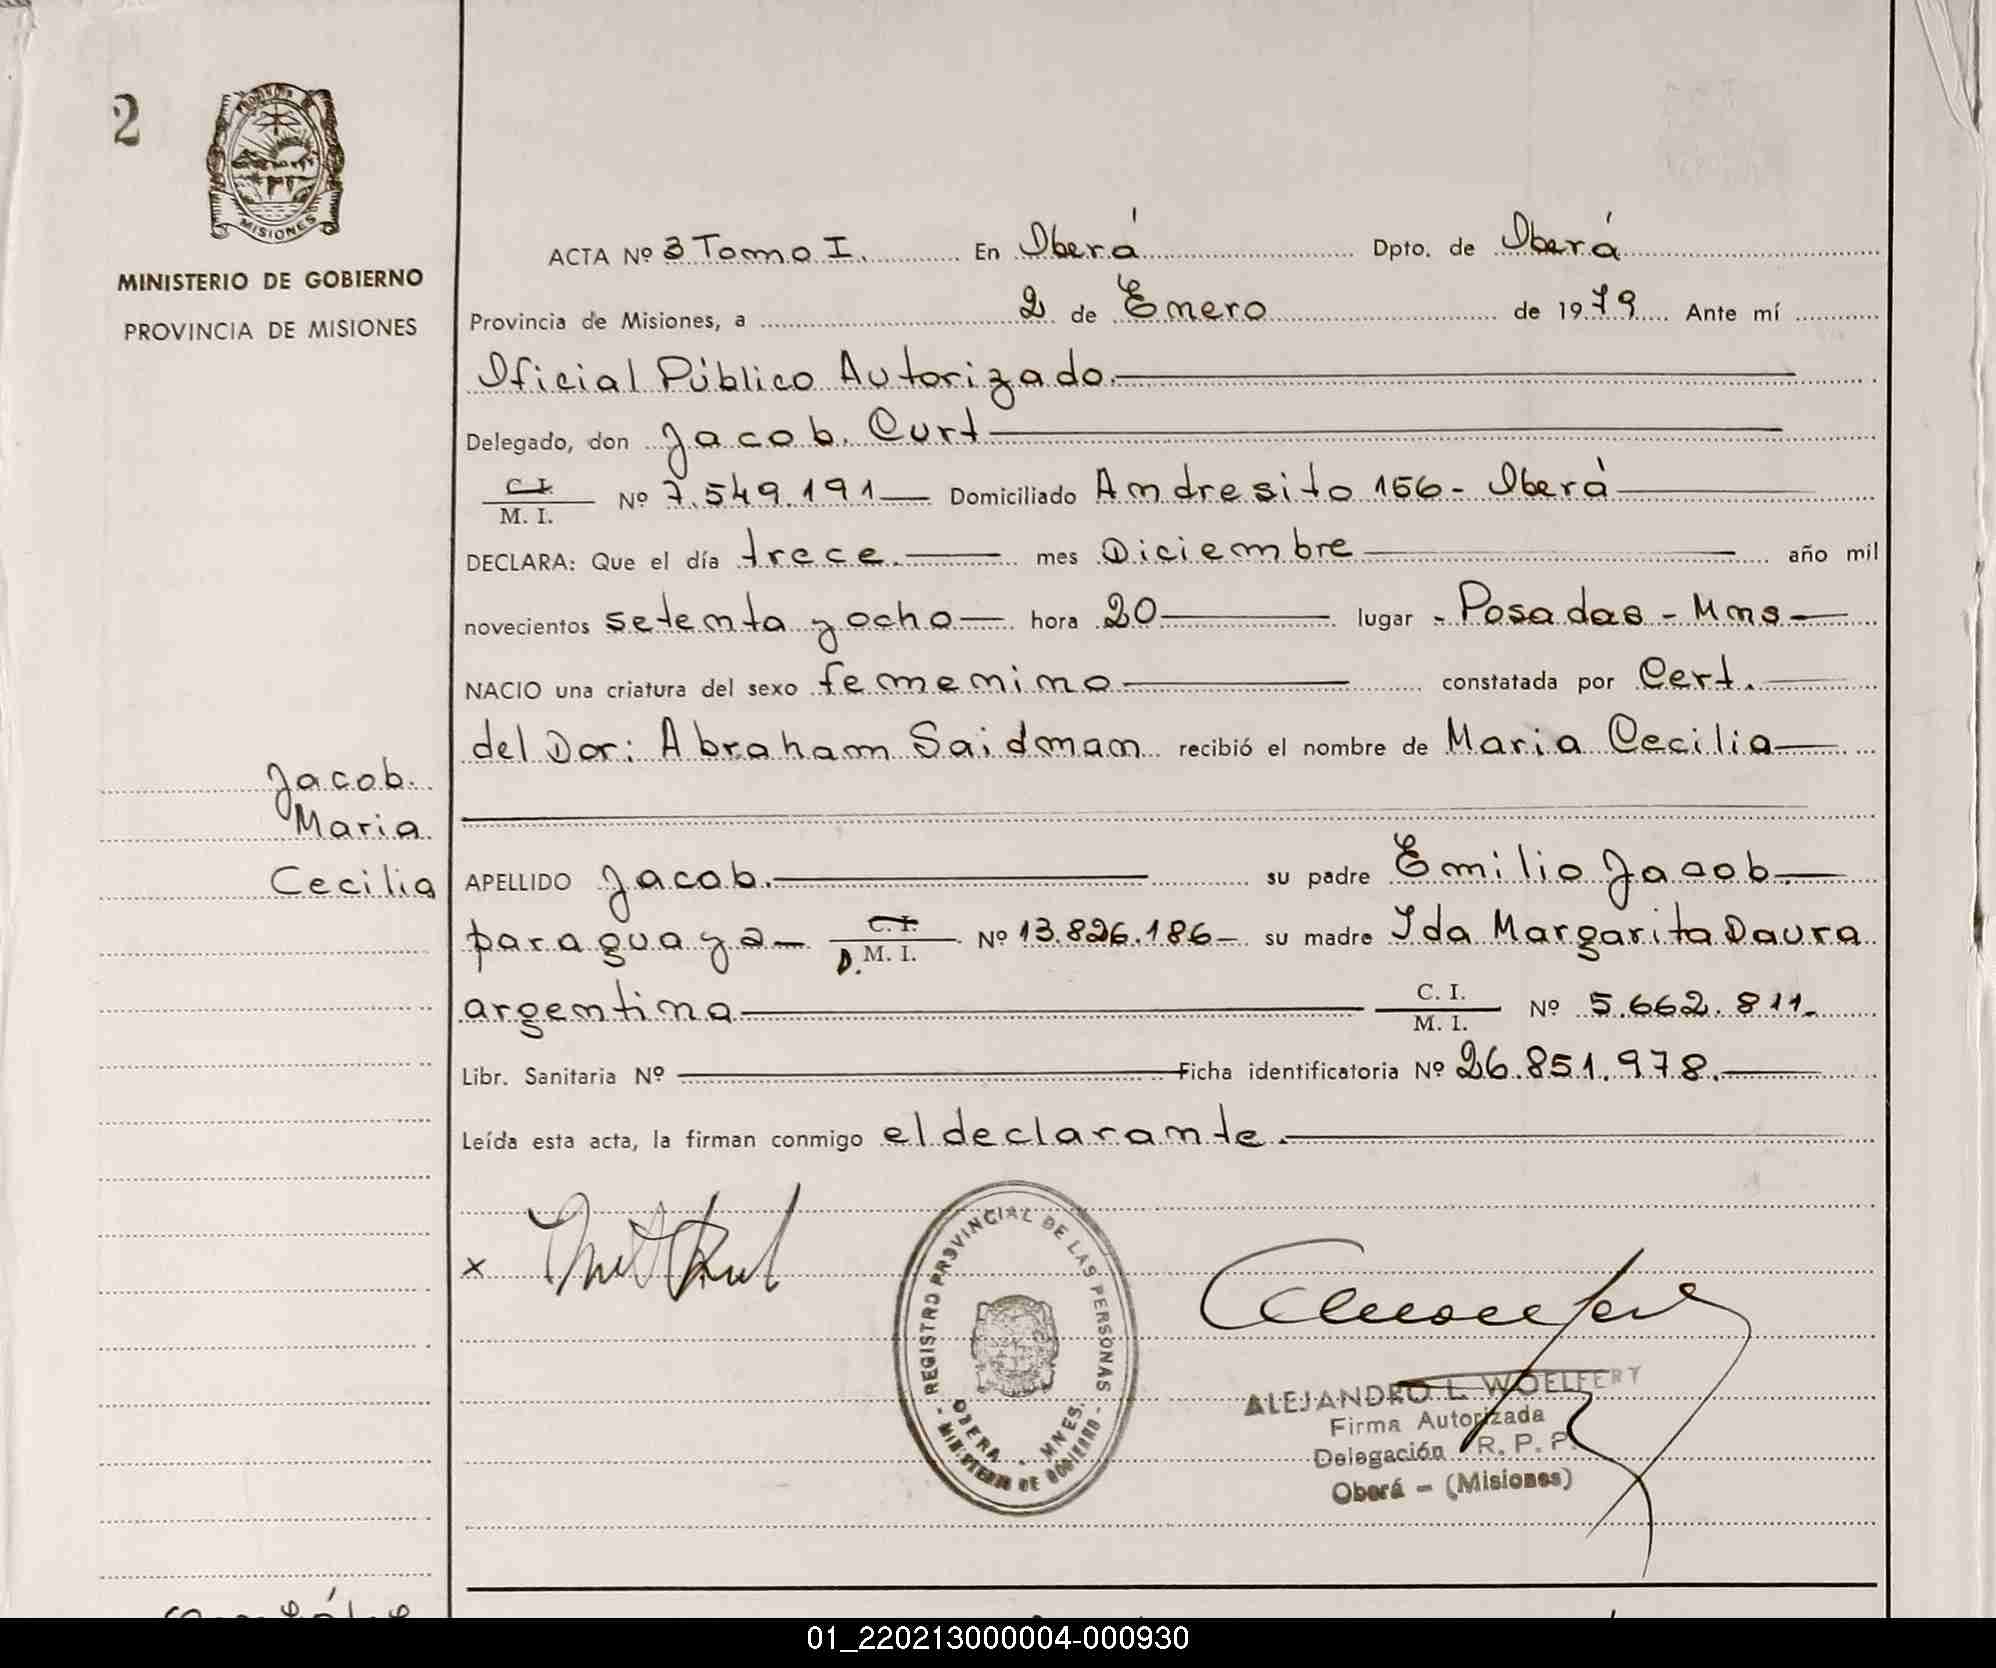 2
MISIONES
MINISTERIO DE GOBIERNO
PROVINCIA DE MISIONES
ACTA Nº 3 Tomo I. En Oberá Dpto. de Oberá
Provincia de Misiones, a 2 de Enero de 1979 Ante mí
Oficial Público Autorizado.
Delegado, don Jacob. Curt
C. I.
M. I. Nº 7.549.191 Domiciliado Andresito 156 - Oberá
DECLARA: Que el día trece. mes Diciembre año mil
novecientos setenta y ocho hora 20 lugar - Posadas - Mns -
NACIO una criatura del sexo femenino constatada por Cert.
del Dor: Abraham Saidman recibió el nombre de Maria Cecilia
Jacob.
Maria
Cecilia
APELLIDO Jacob. su padre Emilio Jacob.
paraguaya C. I.
D. M. I. Nº 13.826.186 su madre Ida Margarita Daura
argentina C. I.
M. I. Nº 5.662.811.
Libr. Sanitaria Nº Ficha identificatoria Nº 26.851.978.
Leída esta acta, la firman conmigo el declarante.
x
REGISTRO PROVINCIAL DE LAS PERSONAS
OBERA - MNES.
- MINISTERIO DE GOBIERNO -
ALEJANDRO L. WOELFERT
Firma Autorizada
Delegación R. P. P.
Oberá - (Misiones)
01_220213000004-000930